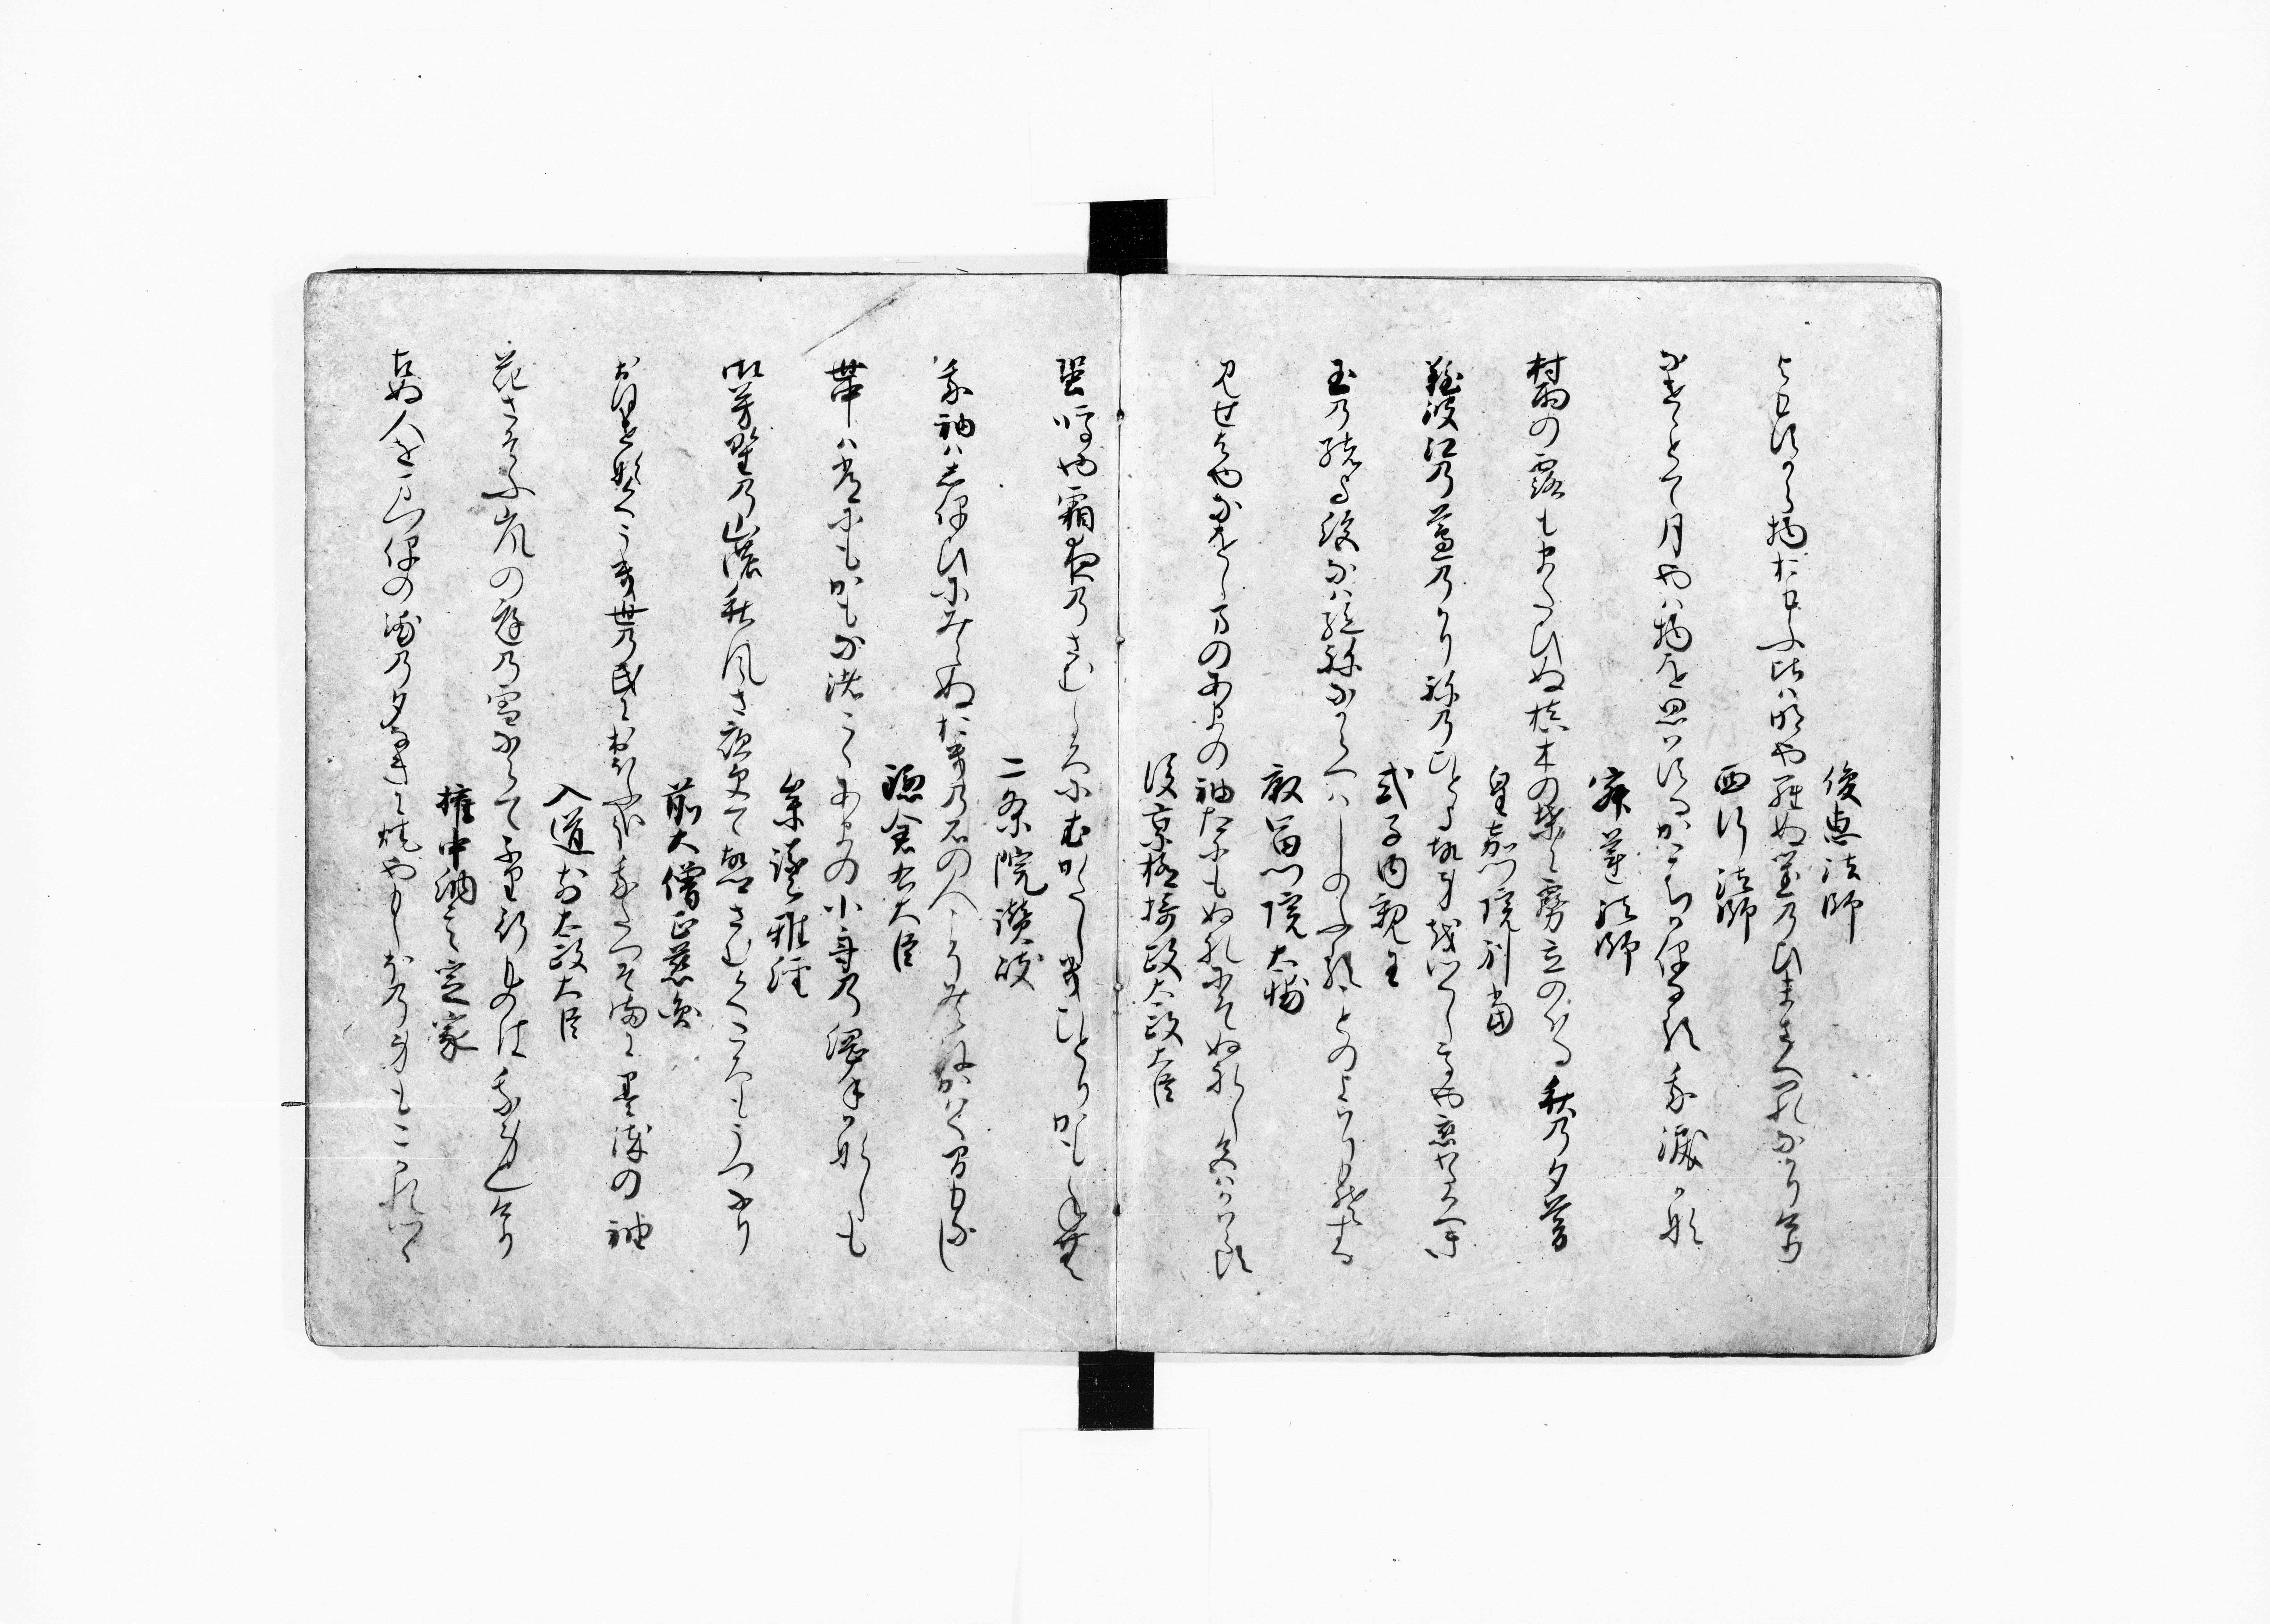 俊恵法師
よもすから物おもふ比は明やらぬ閨のひまさへつれなかりけり
西行法師
なけゝとて月やは物を思はするかこちかほなる我涙かな
寂蓮法師
村雨の露もまたひぬ槙木の葉に霧立のほる秋の夕暮
皇嘉門院別当
難波江乃蘆乃かり祢乃ひとよゆへ身越つくしてや恋わたるへき
式子内親王
玉乃緒よ絶なは絶ねなからへはしのふることのよはりもそする
殷富門院大輔
見せはやなをしまのあまの袖たにもぬれにそぬれし色はかはらす
後京極摂政太政大臣
蛬鳴や霜夜乃さむしろに衣かたしきひとりかもねむ
二条院讃岐
我袖はしほひにみえぬおき乃石の人こそしらねかはくまもなし
鎌倉右大臣
世中は常にもかもな渚こくあまの小舟乃綱手かなしも
参議雅経
み芳野乃山の秋風さ夜更て故郷さむくころもうつなり
前大僧正慈円
おほけなくうき世乃民におほふ哉我たつそまに墨染の袖
入道前太政大臣
花さそふ嵐の庭乃雪ならてふり行ものは我身也けり
権中納言定家
こぬ人をまつほの浦乃夕なきに焼やもしほ乃身もこかれつゝ